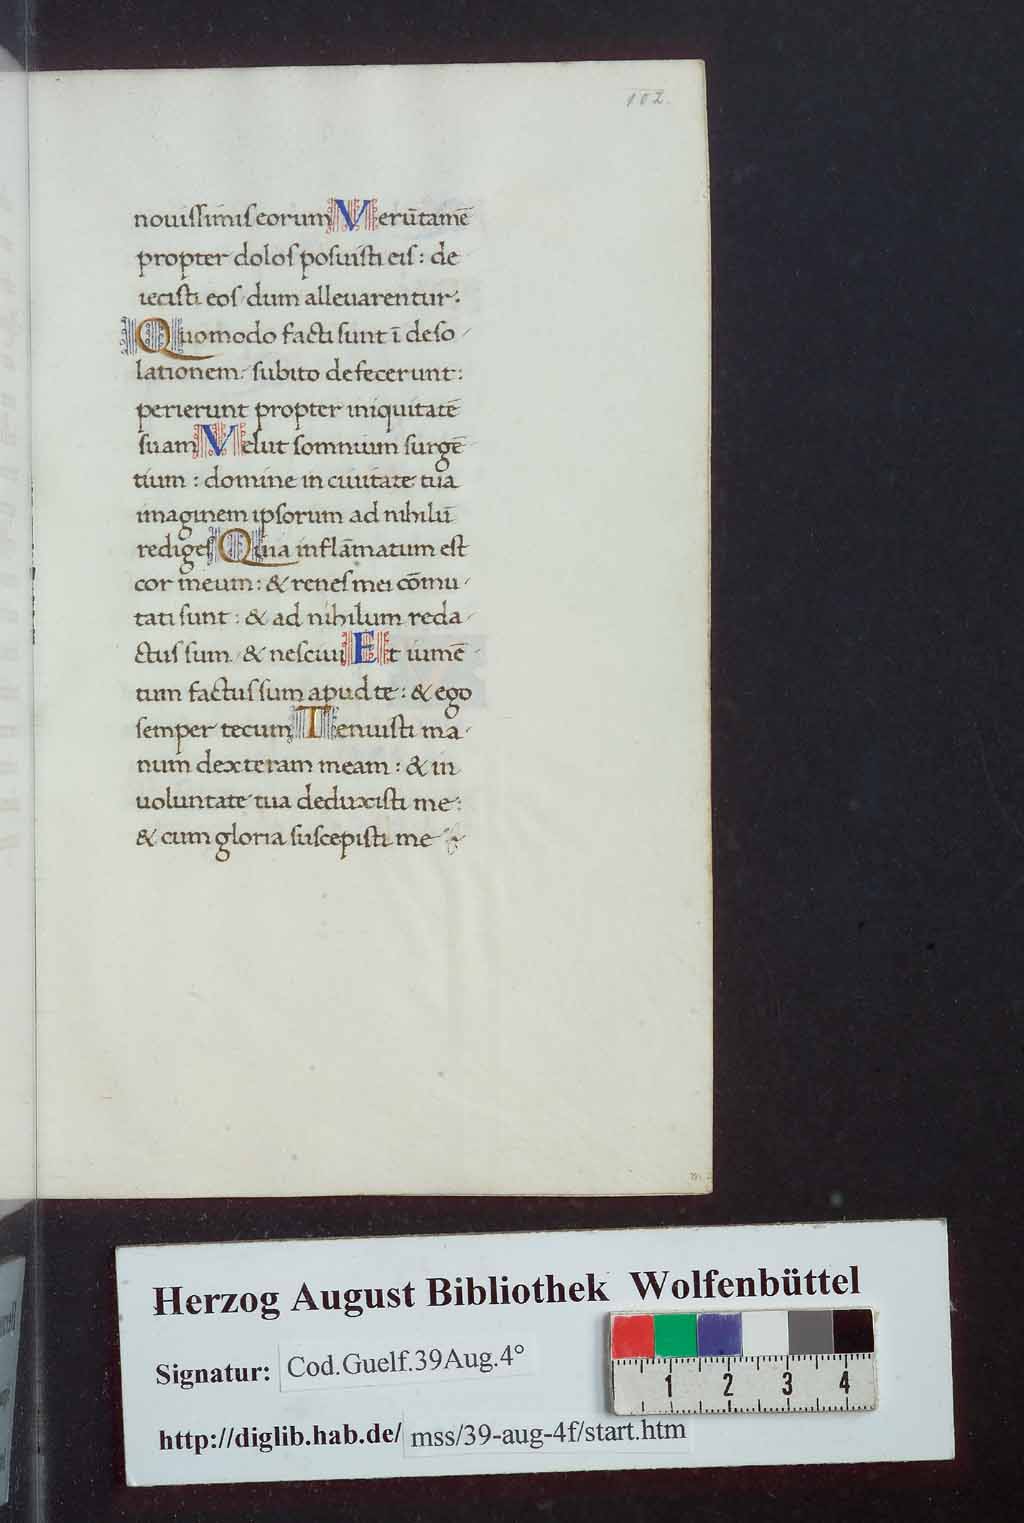 102.
nouissimis eorum Verūtamē
propter dolos posuisti eis: de
iecisti eos dum alleuarentur:
Quomodo facti sunt ī deso
lationem: subito defecerunt:
perierunt propter iniquitatē
suam Velut somnium surgē
tium: domine in ciuitate tua
imaginem ipsorum ad nihilū
rediges Quia inflāmatum est
cor meum: & renes mei cōmu
tati sunt: & ad nihilum reda
ctus sum & nesciui Et iumē
tum factus sum apud te: & ego
semper tecum Tenuisti ma
num dexteram meam: & in
uoluntate tua deduxisti me:
& cum gloria suscepisti me
Herzog August Bibliothek Wolfenbüttel
Signatur: Cod.Guelf.39Aug.4°
1 2 3 4
http://diglib.hab.de/ mss/39-aug-4f/start.htm